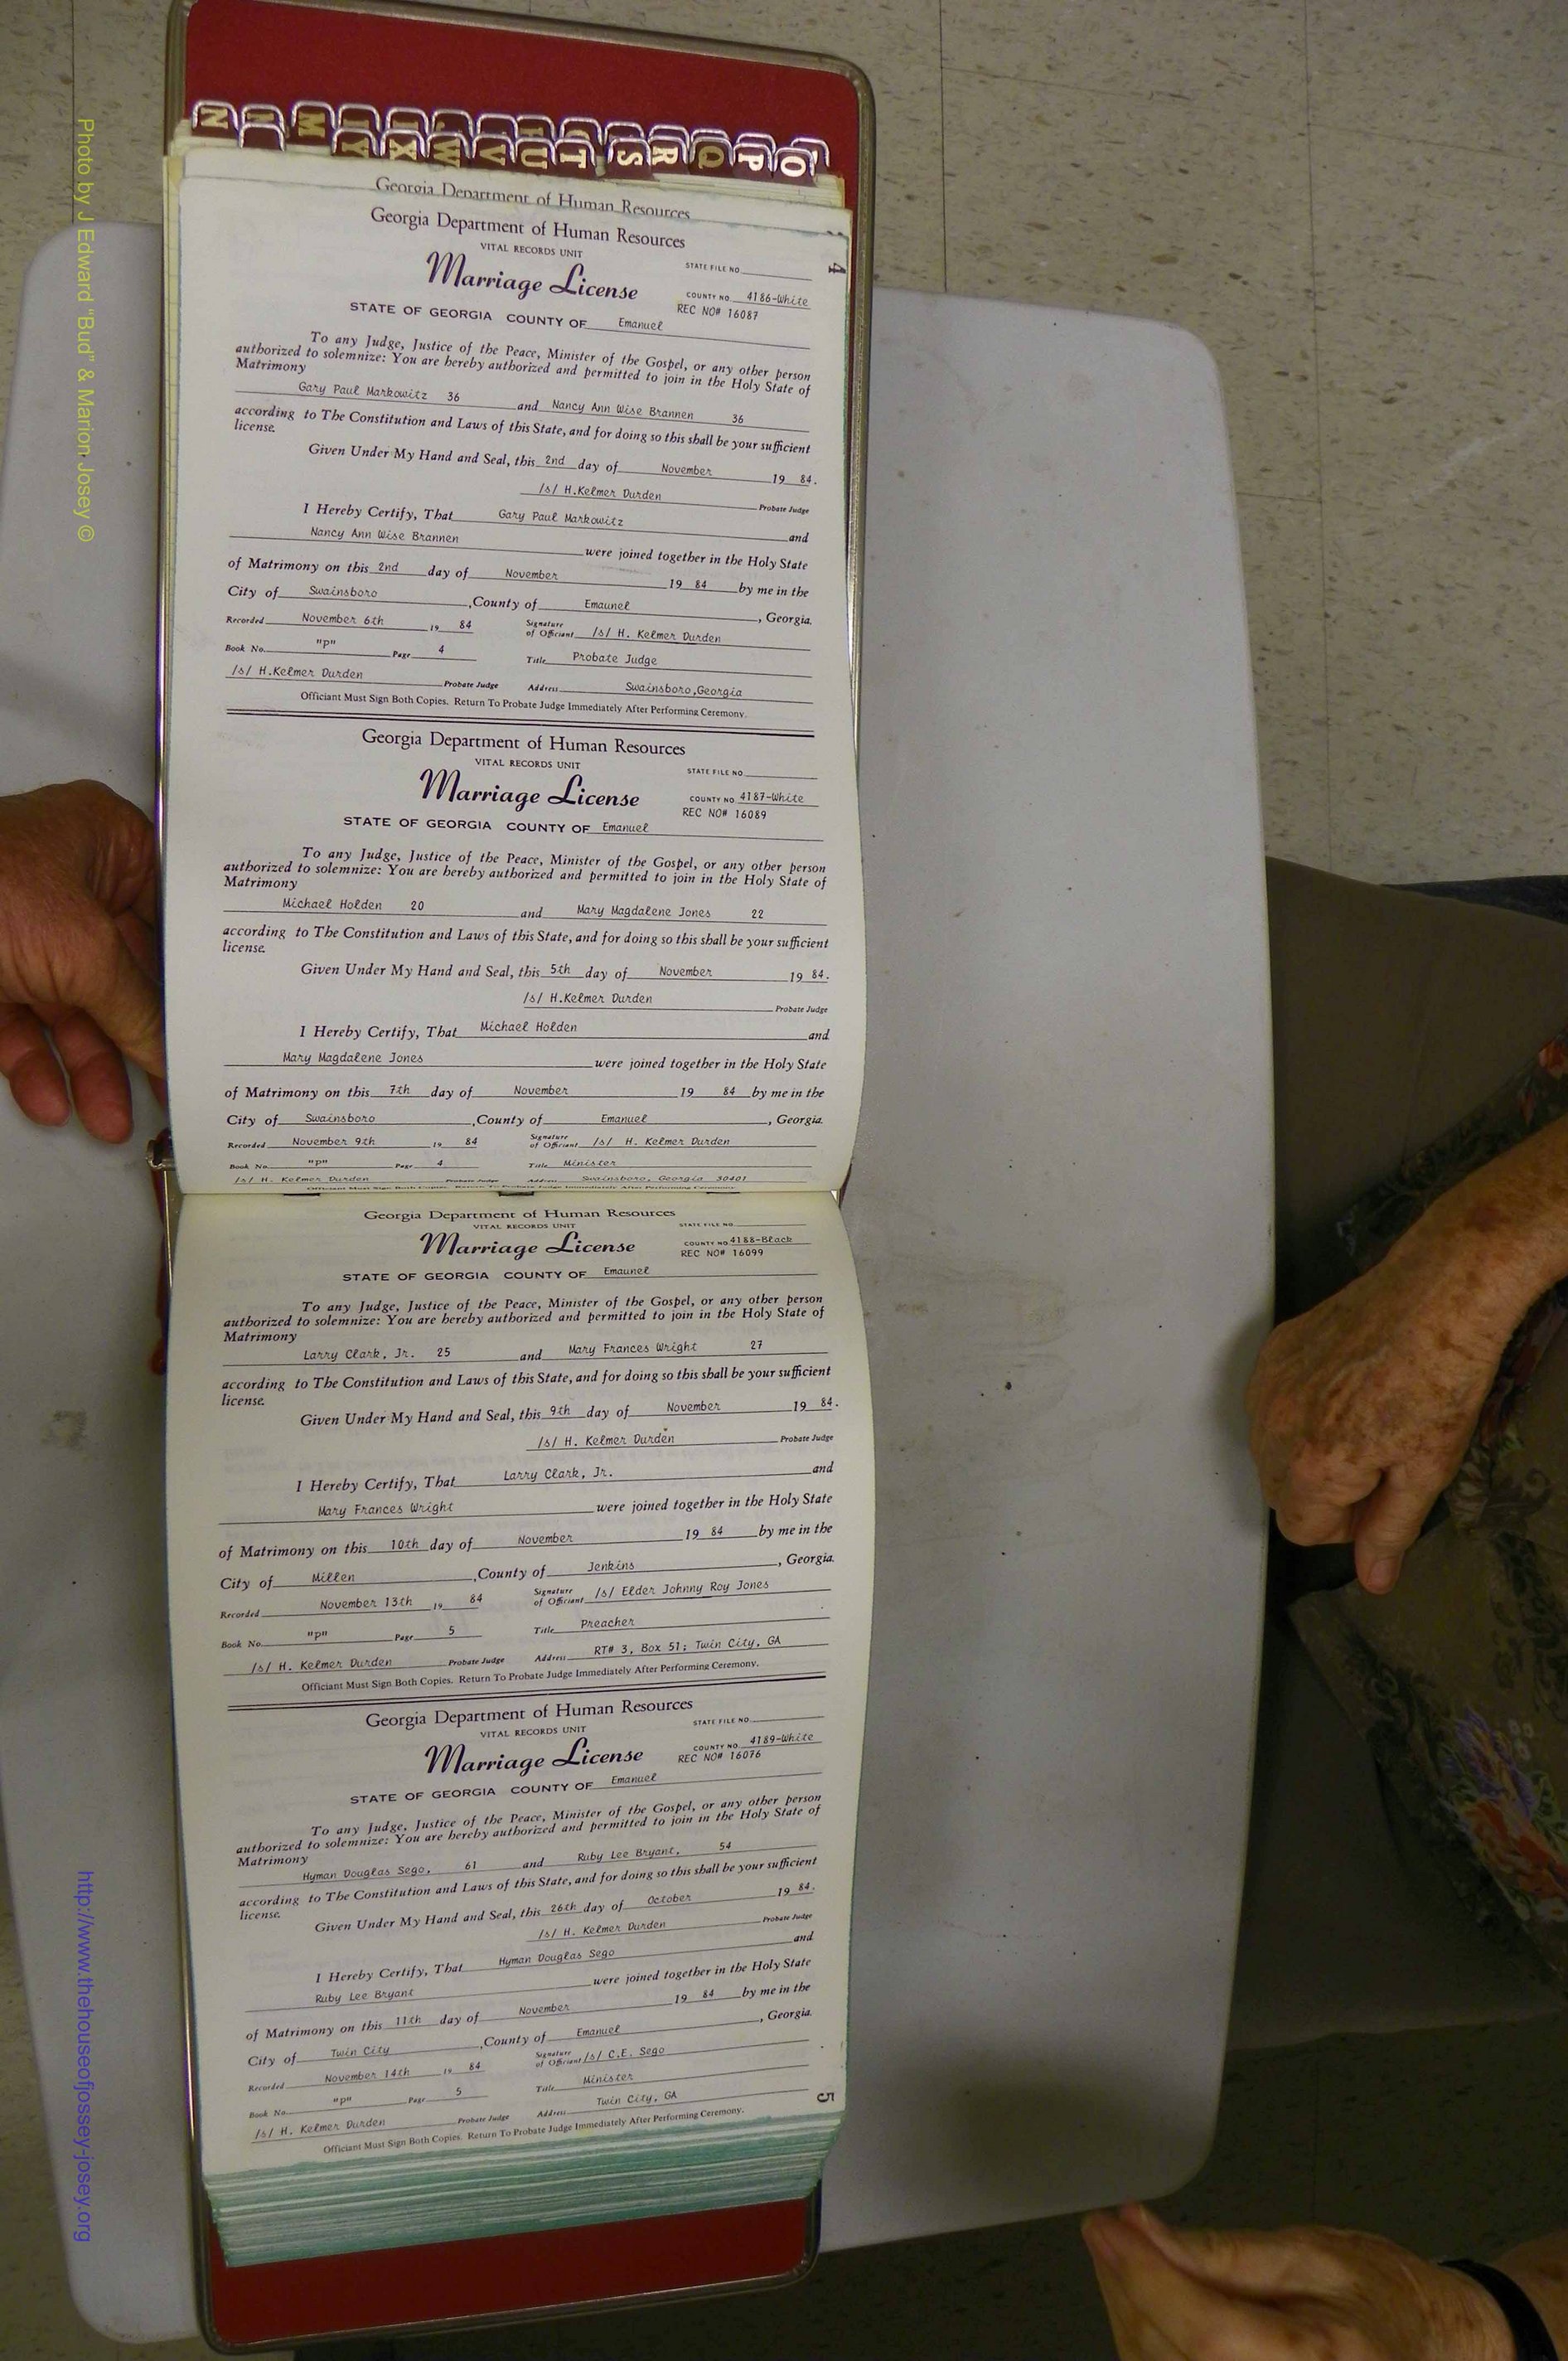 Photo by J Edward "Bud" & Marion Josey ©
http://www.thehouseofjossey-josey.org
N M Y X W V U T S R Q P O
Georgia Department of Human Resources
4
Georgia Department of Human Resources
VITAL RECORDS UNIT
STATE FILE NO.
Marriage License
COUNTY NO. 4186-White
REC NO# 16087
STATE OF GEORGIA COUNTY OF Emanuel
To any Judge, Justice of the Peace, Minister of the Gospel, or any other person
authorized to solemnize: You are hereby authorized and permitted to join in the Holy State of
Matrimony
Gary Paul Markowitz 36 and Nancy Ann Wise Brannen 36
according to The Constitution and Laws of this State, and for doing so this shall be your sufficient
license.
Given Under My Hand and Seal, this 2nd day of November 19 84.
/s/ H.Kelmer Durden Probate Judge
I Hereby Certify, That Gary Paul Markowitz and
Nancy Ann Wise Brannen were joined together in the Holy State
of Matrimony on this 2nd day of November 19 84 by me in the
City of Swainsboro, County of Emaunel, Georgia.
Recorded November 6th 19 84 Signature of Officiant /s/ H. Kelmer Durden
Book No. "p" Page 4 Title Probate Judge
/s/ H.Kelmer Durden Probate Judge Address Swainsboro,Georgia
Officiant Must Sign Both Copies. Return To Probate Judge Immediately After Performing Ceremony.
Georgia Department of Human Resources
VITAL RECORDS UNIT
STATE FILE NO.
Marriage License
COUNTY NO. 4187-White
REC NO# 16089
STATE OF GEORGIA COUNTY OF Emanuel
To any Judge, Justice of the Peace, Minister of the Gospel, or any other person
authorized to solemnize: You are hereby authorized and permitted to join in the Holy State of
Matrimony
Michael Holden 20 and Mary Magdalene Jones 22
according to The Constitution and Laws of this State, and for doing so this shall be your sufficient
license.
Given Under My Hand and Seal, this 5th day of November 19 84.
/s/ H.Kelmer Durden Probate Judge
I Hereby Certify, That Michael Holden and
Mary Magdalene Jones were joined together in the Holy State
of Matrimony on this 7th day of November 19 84 by me in the
City of Swainsboro, County of Emanuel, Georgia.
Recorded November 9th 19 84 Signature of Officiant /s/ H. Kelmer Durden
Book No. "p" Page 4 Title Minister
/s/ H. Kelmer Durden Probate Judge Address Swainsboro, Georgia 30401
Officiant Must Sign Both Copies. Return To Probate Judge Immediately After Performing Ceremony.
Georgia Department of Human Resources
VITAL RECORDS UNIT
STATE FILE NO.
Marriage License
COUNTY NO. 4188-Black
REC NO# 16099
STATE OF GEORGIA COUNTY OF Emaunel
To any Judge, Justice of the Peace, Minister of the Gospel, or any other person
authorized to solemnize: You are hereby authorized and permitted to join in the Holy State of
Matrimony
Larry Clark, Jr. 25 and Mary Frances Wright 27
according to The Constitution and Laws of this State, and for doing so this shall be your sufficient
license.
Given Under My Hand and Seal, this 9th day of November 19 84.
/s/ H. Kelmer Durden Probate Judge
I Hereby Certify, That Larry Clark, Jr. and
Mary Frances Wright were joined together in the Holy State
of Matrimony on this 10th day of November 19 84 by me in the
City of Millen, County of Jenkins, Georgia.
Recorded November 13th 19 84 Signature of Officiant /s/ Elder Johnny Roy Jones
Book No. "p" Page 5 Title Preacher
/s/ H. Kelmer Durden Probate Judge Address RT# 3, Box 51; Twin City, GA
Officiant Must Sign Both Copies. Return To Probate Judge Immediately After Performing Ceremony.
Georgia Department of Human Resources
VITAL RECORDS UNIT
STATE FILE NO.
Marriage License
COUNTY NO. 4189-White
REC NO# 16076
STATE OF GEORGIA COUNTY OF Emanuel
To any Judge, Justice of the Peace, Minister of the Gospel, or any other person
authorized to solemnize: You are hereby authorized and permitted to join in the Holy State of
Matrimony
Hyman Douglas Sego, 61 and Ruby Lee Bryant, 54
according to The Constitution and Laws of this State, and for doing so this shall be your sufficient
license.
Given Under My Hand and Seal, this 26th day of October 19 84.
/s/ H. Kelmer Durden Probate Judge
I Hereby Certify, That Hyman Douglas Sego and
Ruby Lee Bryant were joined together in the Holy State
of Matrimony on this 11th day of November 19 84 by me in the
City of Twin City, County of Emanuel, Georgia.
Recorded November 14th 19 84 Signature of Officiant /s/ C.E. Sego
Book No. "p" Page 5 Title Minister
/s/ H. Kelmer Durden Probate Judge Address Twin City, GA
Officiant Must Sign Both Copies. Return To Probate Judge Immediately After Performing Ceremony.
5